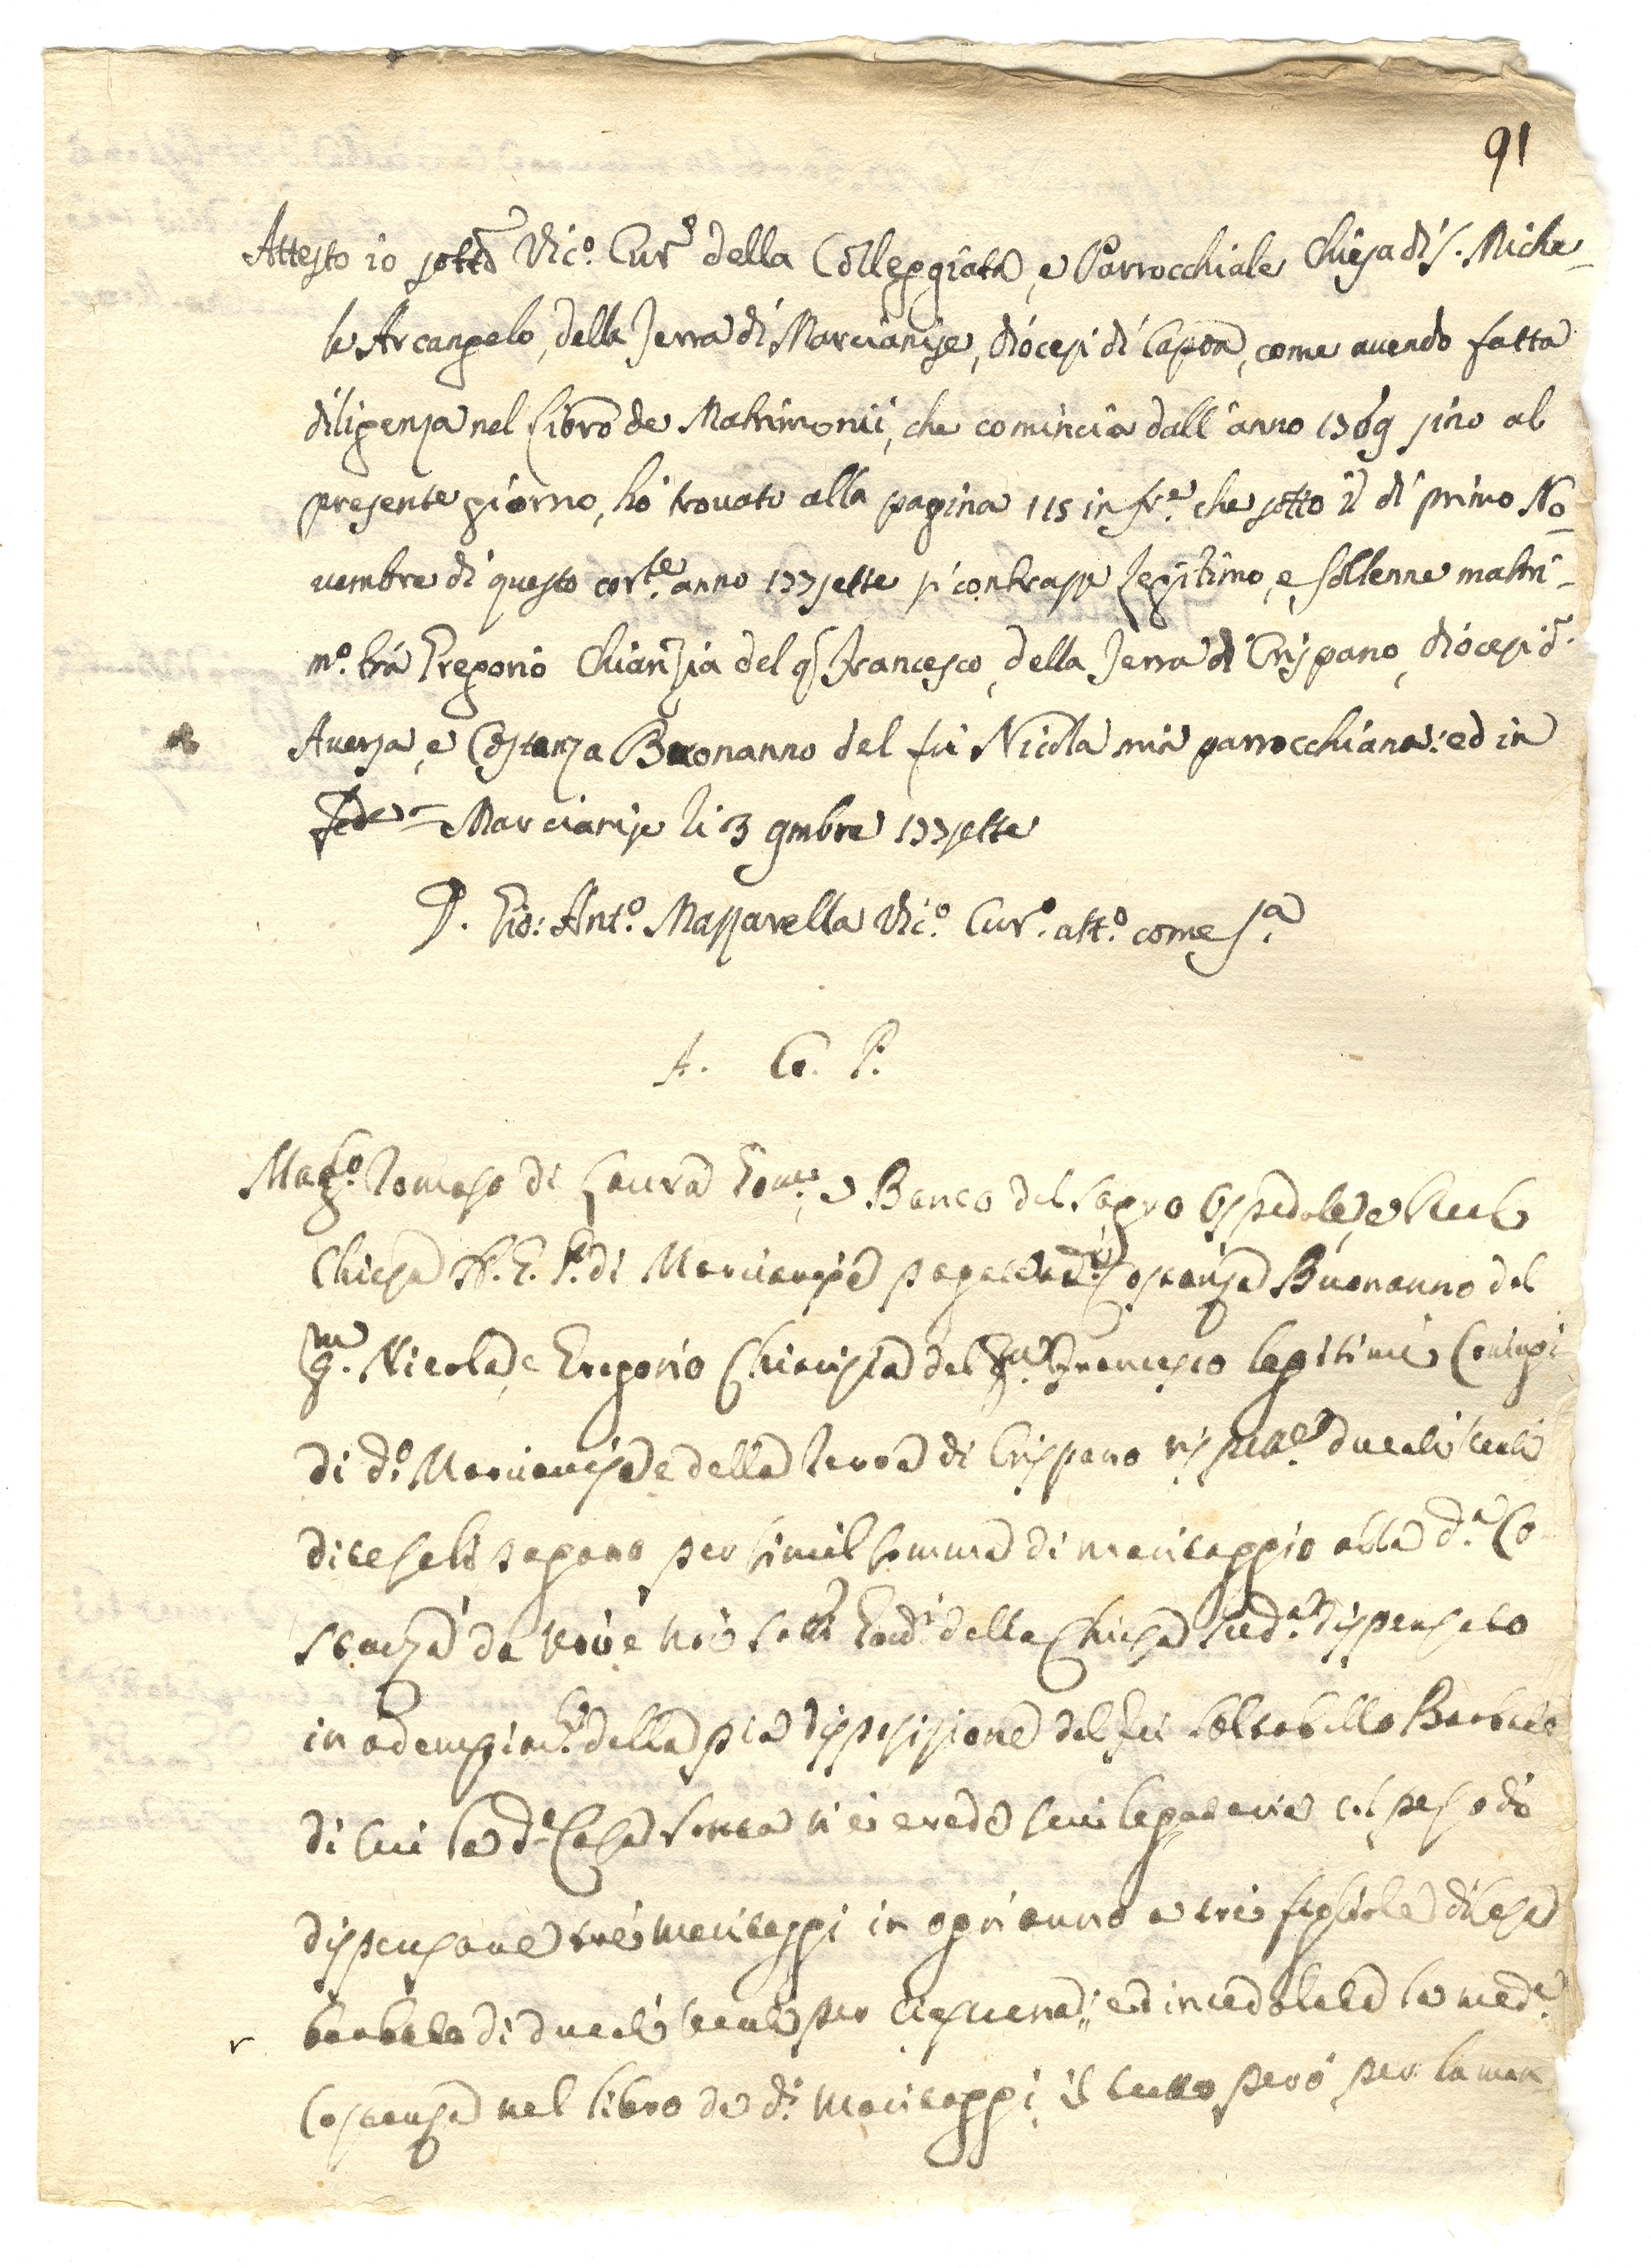 91
Attesto io sott.o Vic.o Cur.o della Colleggiata, e Parrocchiale Chiesa di S. Miche-
le Arcangelo, della Terra di Marcianise, diocesi di Capoa, come avendo fatta
diligenza nel Libro de Matrimonii, che comincia dall'anno 1769 sino al
presente giorno, hò trovato alla pagina 115 in fr.e che sotto il dì primo No-
vembre di questo cor.te anno 177sette si contrasse legitimo, e sollenne matri-
m.o trà Gregorio Chianzia del q. Francesco, della Terra di Crispano, diocesi d'
Aversa, e Costanza Buonanno del fù Nicola mia parrocchiana: ed in
fede Marcianise li 3 9mbre 177sette
D. Gio: Ant.o Mazzarella Vic.o Cur.o att.o come s.a
A. G. P.
Mag.co Tomaso di Laura e Banco del Sagro Ospedale, e
Chiesa A. G. P. di Marcianise pagate à Costanza Buonanno del
q.m Nicola, e Gregorio Chianzia del q.m Francesco legitimi Coniugi
di d.o Marcianise e della Terra di Crispano ducati venti
dite seli pagano per simil somma di maritaggio alla d.a Co
stanza da noi della Chiesa sud.a dispensato
in adempim.to della pia disposizione del fù Barbato
di cui la d.a Casa Santa n'è erede col peso di
dispensare trè maritaggi in ogni anno a trè figliole di Casa
Barbato di ducati venti per ciascuna; ed incedolata la med.a
Costanza nel libro de d.i maritaggi, il tutto però per la man